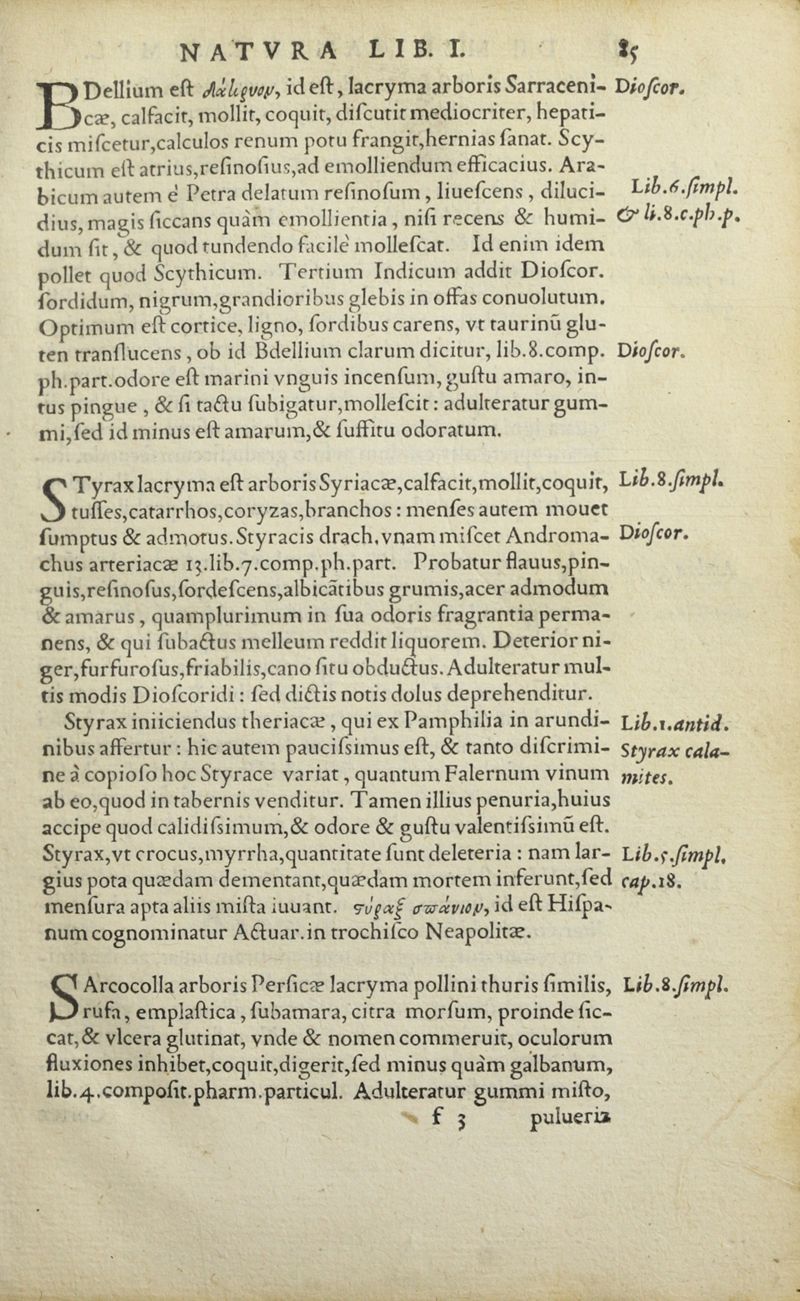 NATVRA LIB. I. 85
BDellium eſt δάκρυον, id eſt, lacryma arboris Sarraceni- Dioſcor.
cæ, calfacit, mollit, coquit, diſcutit mediocriter, hepati-
cis miſcetur,calculos renum potu frangit,hernias ſanat. Scy-
thicum eſt atrius,reſinoſius,ad emolliendum efficacius. Ara-
bicum autem è Petra delatum reſinoſum , liueſcens , diluci- Lib.6.ſimpl.
dius, magis ſiccans quàm emollientia , niſi recens & humi- & li.8.c.ph.p.
dum ſit , & quod tundendo facilè molleſcat. Id enim idem
pollet quod Scythicum. Tertium Indicum addit Dioſcor.
ſordidum, nigrum,grandioribus glebis in offas conuolutum.
Optimum eſt cortice, ligno, ſordibus carens, vt taurinū glu-
ten tranſlucens , ob id Bdellium clarum dicitur, lib.8.comp. Dioſcor.
ph.part.odore eſt marini vnguis incenſum, guſtu amaro, in-
tus pingue , & ſi tactu ſubigatur,molleſcit : adulteratur gum-
mi,ſed id minus eſt amarum,& ſuffitu odoratum.
STyrax lacryma eſt arboris Syriacæ,calfacit,mollit,coquit, Lib.8.ſimpl.
tuſſes,catarrhos,coryzas,branchos : menſes autem mouet
ſumptus & admotus. Styracis drach.vnam miſcet Androma- Dioſcor.
chus arteriacæ 13.lib.7.comp.ph.part. Probatur flauus,pin-
guis,reſinoſus,ſordeſcens,albicātibus grumis,acer admodum
& amarus , quamplurimum in ſua odoris fragrantia perma-
nens, & qui ſubactus melleum reddit liquorem. Deterior ni-
ger,furfuroſus,friabilis,cano ſitu obductus. Adulteratur mul-
tis modis Dioſcoridi : ſed dictis notis dolus deprehenditur.
Styrax iniiciendus theriacæ , qui ex Pamphilia in arundi- Lib.1.antid.
nibus affertur : hic autem pauciſsimus eſt, & tanto diſcrimi- Styrax cala-
ne à copioſo hoc Styrace variat , quantum Falernum vinum mites.
ab eo,quod in tabernis venditur. Tamen illius penuria,huius
accipe quod calidiſsimum,& odore & guſtu valentiſsimū eſt.
Styrax,vt crocus,myrrha,quantitate ſunt deleteria : nam lar- Lib.5.ſimpl.
gius pota quædam dementant,quædam mortem inferunt,ſed cap.18.
menſura apta aliis miſta iuuant. στύραξ σπάνιον, id eſt Hiſpa-
num cognominatur Actuar.in trochiſco Neapolitæ.
SArcocolla arboris Perſicæ lacryma pollini thuris ſimilis, Lib.8.ſimpl.
rufa , emplaſtica , ſubamara, citra morſum, proinde ſic-
cat,& vlcera glutinat, vnde & nomen commeruit, oculorum
fluxiones inhibet,coquit,digerit,ſed minus quàm galbanum,
lib.4.compoſit.pharm.particul. Adulteratur gummi miſto,
f 3 pulueris